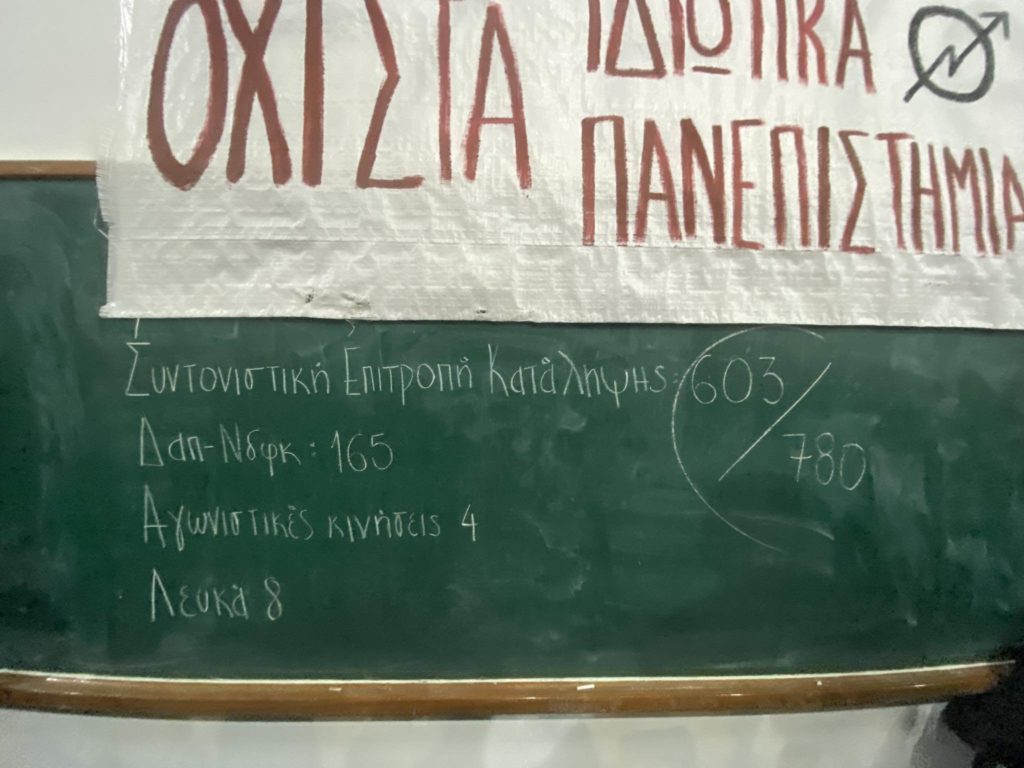 ΟΧΙ ΣΤΑ ΙΔΙΩΤΙΚΑ
ΠΑΝΕΠΙΣΤΗΜΙΑ
Συντονιστική Επιτροπή Κατάληψης: 603/780
Δαπ-Νδφκ: 165
Αγωνιστικές κινήσεις 4
Λευκά 8